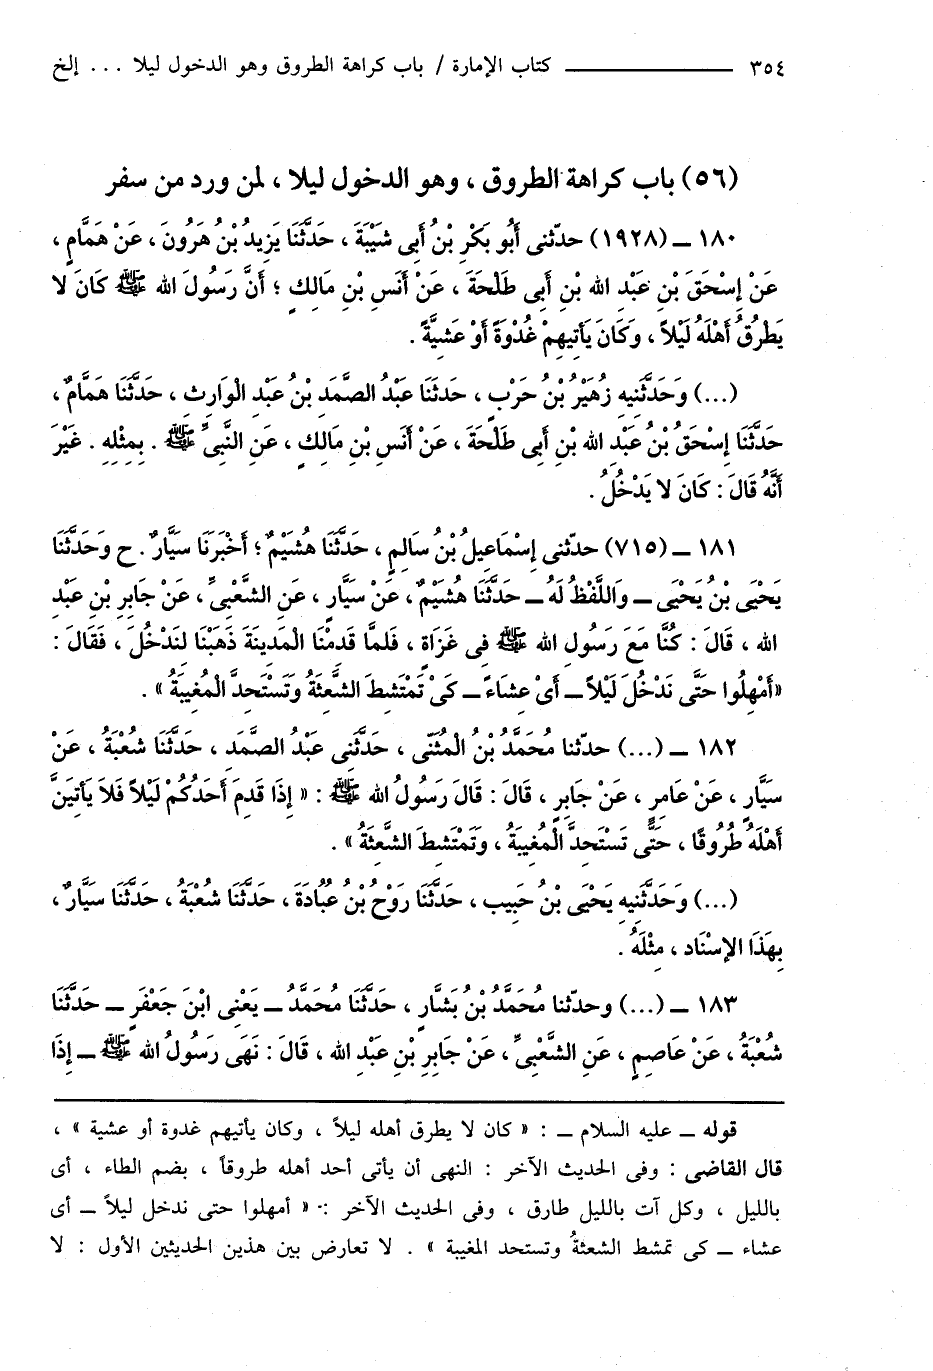 ٣٥٤ ـــــــــــــ كتاب الإمارة / باب كراهة الطروق وهو الدخول ليلا ... إلخ
(٥٦) باب كراهة الطروق ، وهو الدخول ليلا ، لمن ورد من سفر
١٨٠ ــ (١٩٢٨) حدّثنى أَبُو بَكْرِ بْنُ أَبِى شَيْبَةَ ، حَدَّثَنَا يَزِيدُ بْنُ هَرُونَ ، عَنْ هَمَّامٍ ،
عَنْ إِسْحَقَ بْنِ عَبْدِ الله بْنِ أَبِى طَلْحَةَ ، عَنْ أَنَسِ بْنِ مَالِكٍ ؛ أَنَّ رَسُولَ الله ﷺ كَانَ لا
يَطْرُقُ أَهْلَهُ لَيْلاً ، وَكَانَ يَأْتِيهِمْ غُدْوَةً أَوْ عَشِيَّةً .
(...) وَحَدَّثَنِيهِ زُهَيْرُ بْنُ حَرْبٍ ، حَدَّثَنَا عَبْدُ الصَّمَدِ بْنُ عَبْدِ الْوَارِثِ ، حَدَّثَنَا هَمَّامٌ ،
حَدَّثَنَا إِسْحَقُ بْنُ عَبْدِ الله بْنِ أَبِى طَلْحَةَ ، عَنْ أَنَسِ بْنِ مَالِكٍ ، عَنِ النَّبِىِّ ﷺ . بِمِثْلِهِ . غَيْرَ
أَنَّهُ قَالَ : كَانَ لا يَدْخُلُ .
١٨١ ــ (٧١٥) حدّثنى إِسْمَاعِيلُ بْنُ سَالِمٍ ، حَدَّثَنَا هُشَيْمٌ ؛ أَخْبَرَنَا سَيَّارٌ . ح وَحَدَّثَنَا
يَحْيَى بْنُ يَحْيَى ــ وَاللَّفْظُ لَهُ ــ حَدَّثَنَا هُشَيْمٌ ، عَنْ سَيَّارٍ ، عَنِ الشَّعْبِىِّ ، عَنْ جَابِرِ بْنِ عَبْدِ
الله ، قَالَ : كُنَّا مَعَ رَسُولِ الله ﷺ فِى غَزَاةٍ ، فَلَمَّا قَدِمْنَا الْمَدِينَةَ ذَهَبْنَا لِنَدْخُلَ ، فَقَالَ :
« أَمْهِلُوا حَتَّى نَدْخُلَ لَيْلاً ــ أَىْ عِشَاءً ــ كَىْ تَمْتَشِطَ الشَّعِثَةُ وَتَسْتَحِدَّ الْمُغِيبَةُ » .
١٨٢ ــ (...) حدّثنا مُحَمَّدُ بْنُ الْمُثَنَّى ، حَدَّثَنِى عَبْدُ الصَّمَدِ ، حَدَّثَنَا شُعْبَةُ ، عَنْ
سَيَّارٍ ، عَنْ عَامِرٍ ، عَنْ جَابِرٍ ، قَالَ : قَالَ رَسُولُ الله ﷺ : « إِذَا قَدِمَ أَحَدُكُمْ لَيْلاً فَلاَ يَأْتِيَنَّ
أَهْلَهُ طُرُوقًا ، حَتَّى تَسْتَحِدَّ الْمُغِيبَةُ ، وَتَمْتَشِطَ الشَّعِثَةُ » .
(...) وَحَدَّثَنِيهِ يَحْيَى بْنُ حَبِيبٍ ، حَدَّثَنَا رَوْحُ بْنُ عُبَادَةَ ، حَدَّثَنَا شُعْبَةُ ، حَدَّثَنَا سَيَّارٌ ،
بِهَذَا الإِسْنَادِ ، مِثْلَهُ .
١٨٣ ــ (...) وحدّثنا مُحَمَّدُ بْنُ بَشَّارٍ ، حَدَّثَنَا مُحَمَّدُ ــ يَعْنِى ابْنَ جَعْفَرٍ ــ حَدَّثَنَا
شُعْبَةُ ، عَنْ عَاصِمٍ ، عَنِ الشَّعْبِىِّ ، عَنْ جَابِرِ بْنِ عَبْدِ الله ، قَالَ : نَهَى رَسُولُ الله ﷺ ــ إِذَا
قوله ــ عليه السلام ــ : « كان لا يطرق أهله ليلاً ، وكان يأتيهم غدوة أو عشية » ،
قال القاضى : وفى الحديث الآخر : النهى أن يأتى أحد أهله طروقاً ، بضم الطاء ، أى
بالليل ، وكل آت بالليل طارق ، وفى الحديث الآخر : « أمهلوا حتى ندخل ليلاً ــ أى
عشاء ــ كى تمشط الشعثةُ وتستحد المغيبة » . لا تعارض بين هذين الحديثين الأول : لا